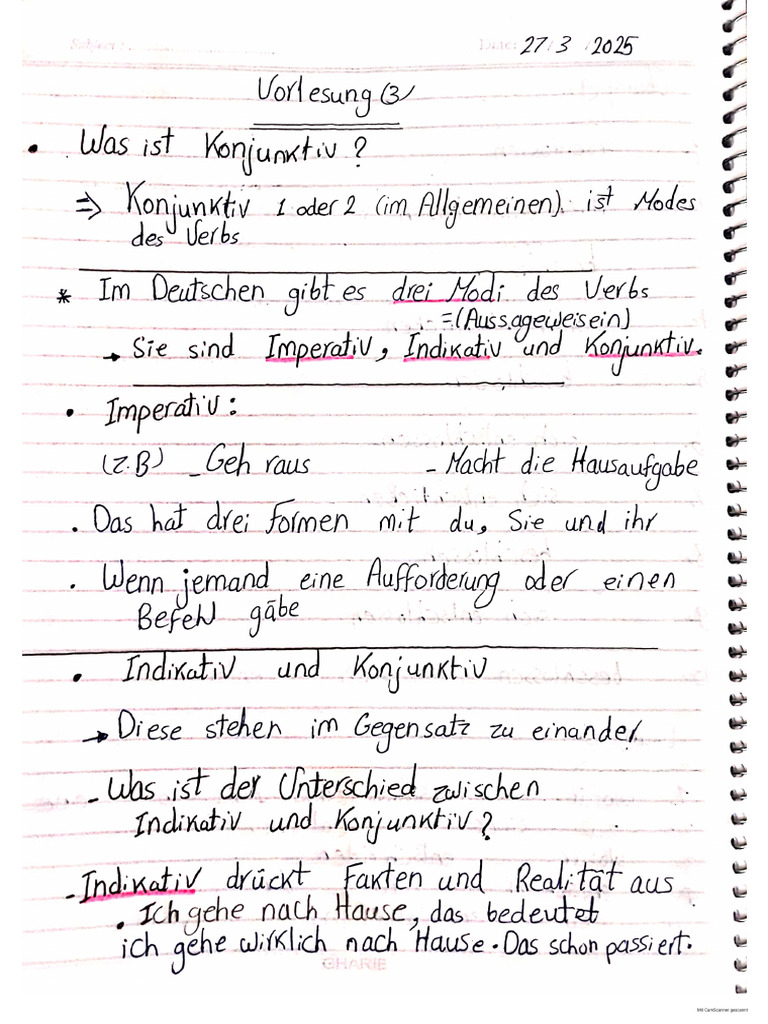 Subject: Date: 27/3/2025
Vorlesung (3)
• Was ist Konjunktiv?
⇒ Konjunktiv 1 oder 2 (im Allgemeinen) ist Modes
des Verbs
* Im Deutschen gibt es drei Modi des Verbs
=(Aussageweisein)
→ Sie sind Imperativ, Indikativ und Konjunktiv.
• Imperativ:
(Z.B) - Geh raus - Macht die Hausaufgabe
• Das hat drei Formen mit du, Sie und ihr
• Wenn jemand eine Aufforderung oder einen
Befehl gäbe
• Indikativ und Konjunktiv
→ Diese stehen im Gegensatz zu einander
- Was ist der Unterschied zwischen
Indikativ und Konjunktiv?
- Indikativ drückt Fakten und Realität aus
• Ich gehe nach Hause, das bedeutet
ich gehe wirklich nach Hause. Das schon passiert.
GHARIE
Mit CamScanner gescannt